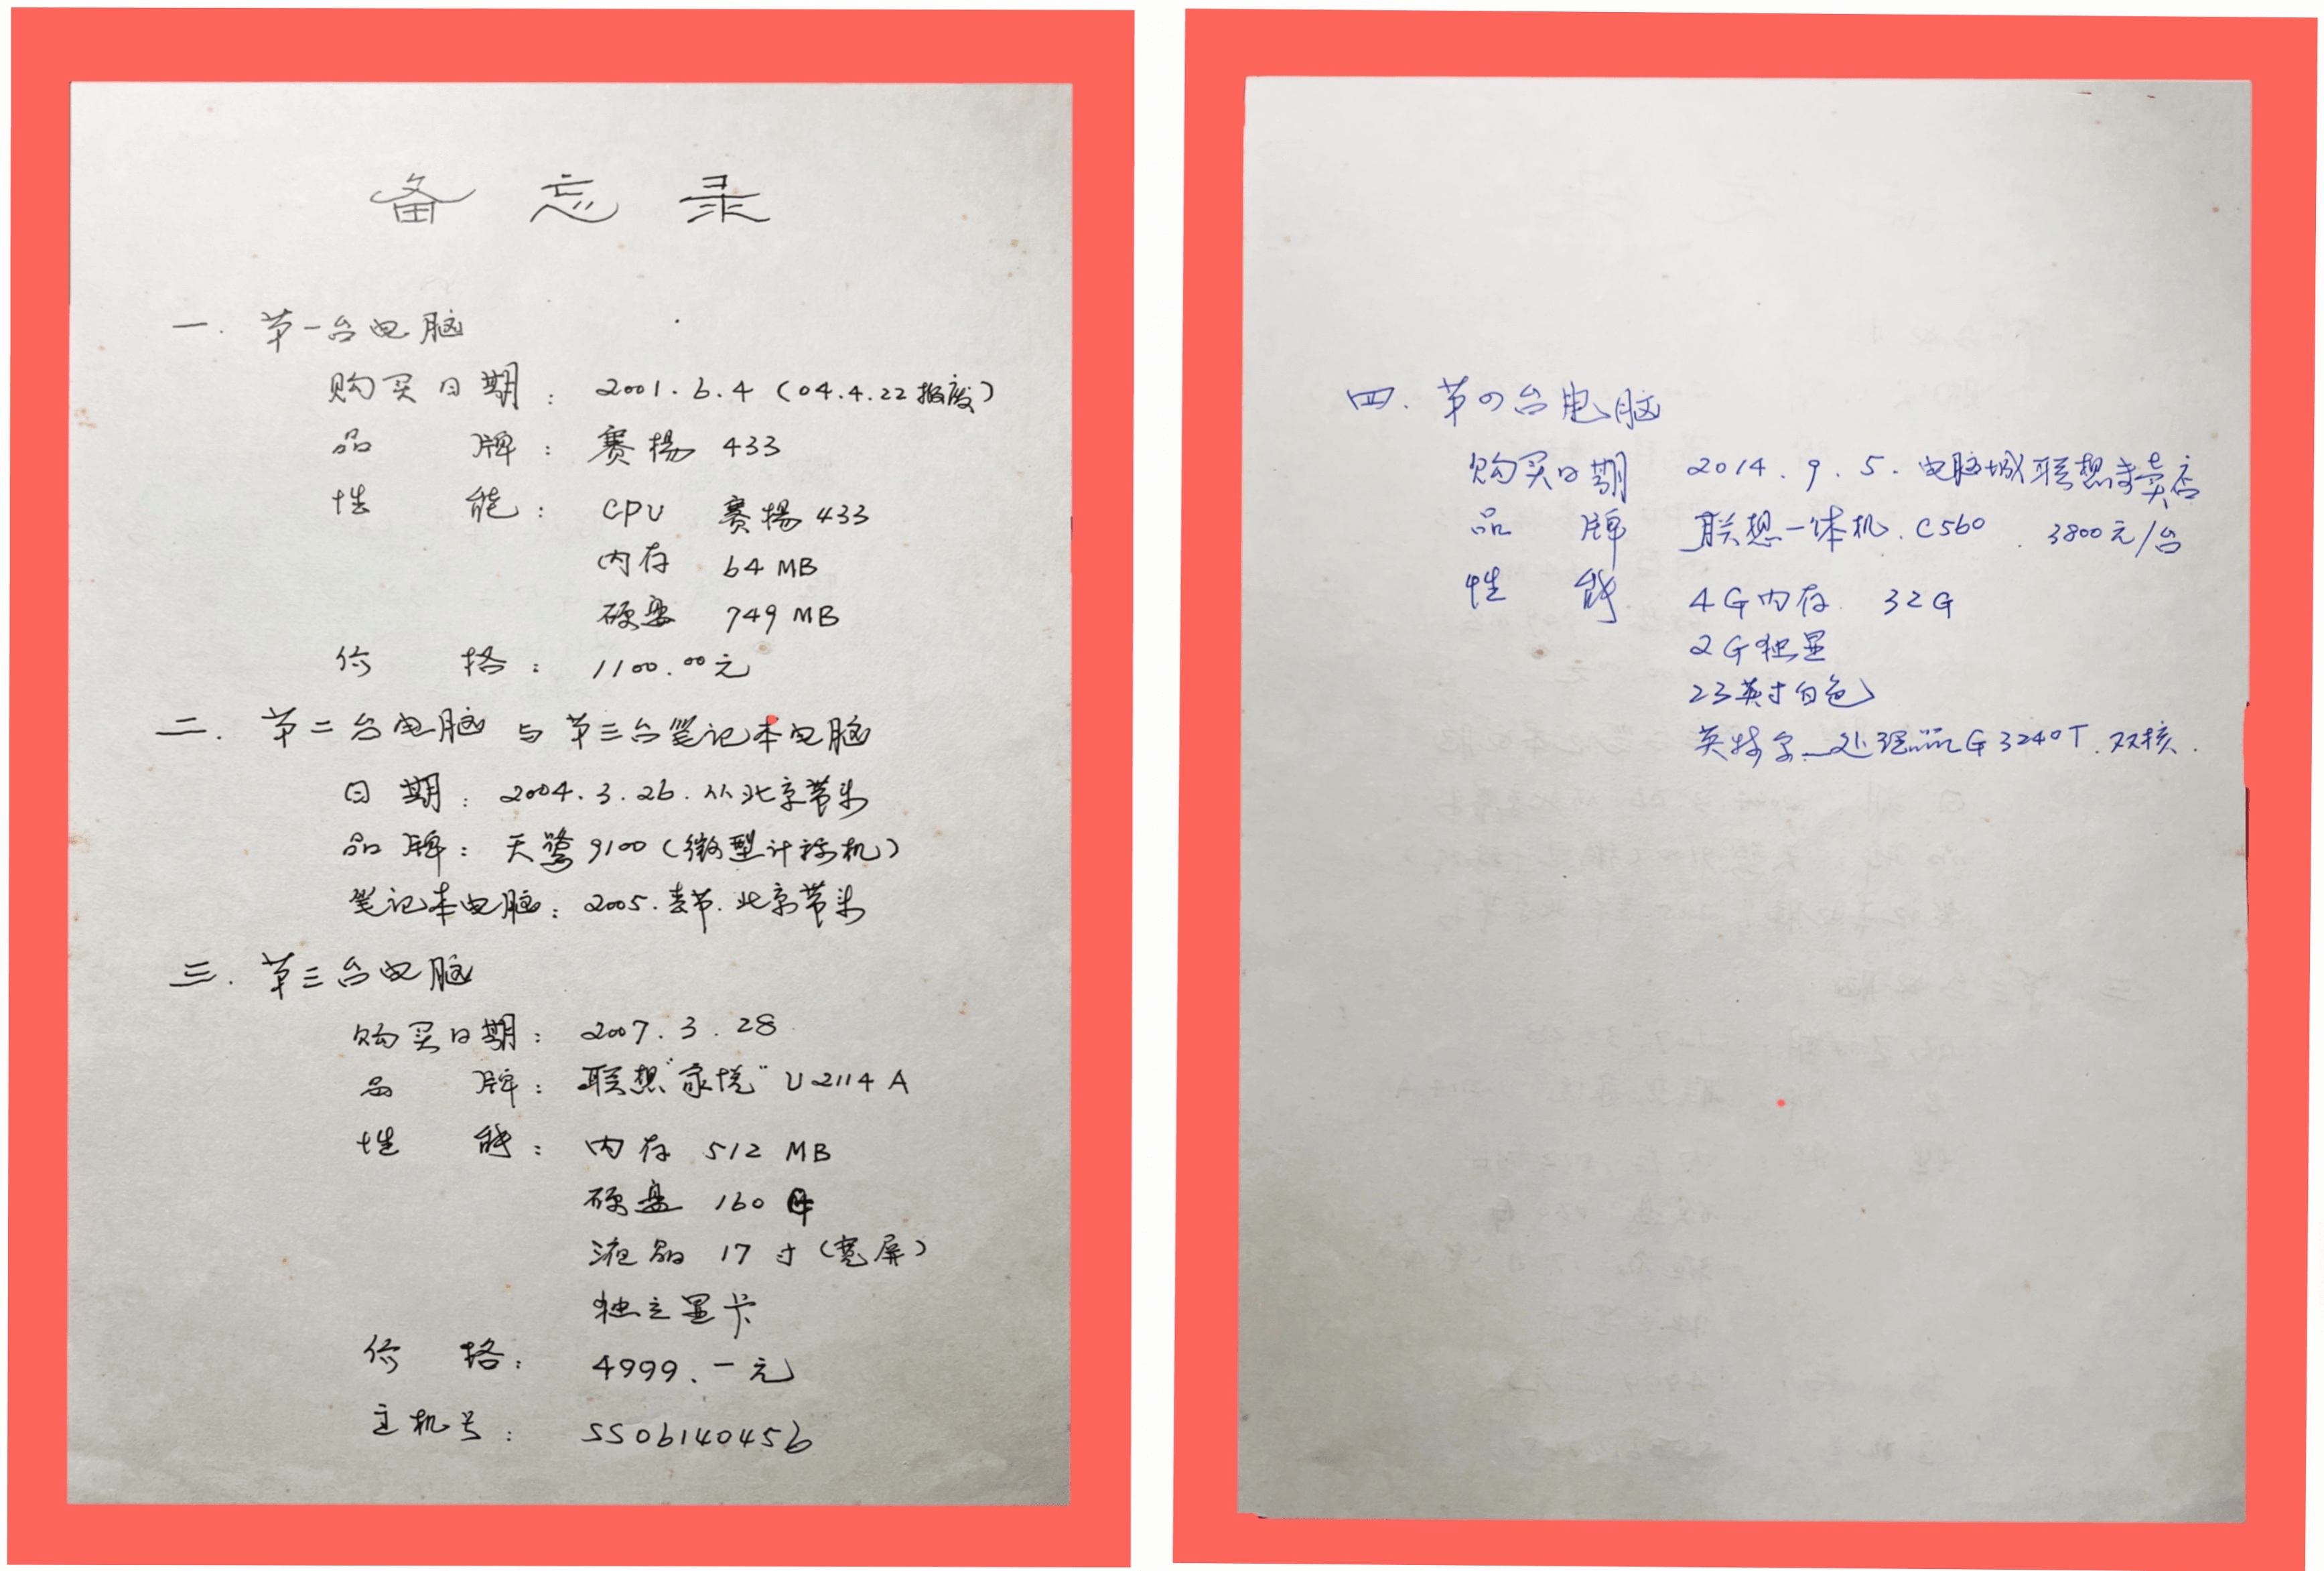 备忘录
一. 第一台电脑
购买日期： 2001.6.4（04.4.22报废）
品 牌： 赛揚 433
性 能： CPU 赛揚 433
内存 64 MB
硬盘 749 MB
价 格： 1100.00元
二. 第二台电脑 与 第三台笔记本电脑
日 期： 2004.3.26. 从北京带来
品 牌： 天鹭 9100（微型计祘机）
笔记本电脑： 2005.春节.北京带来
三. 第三台电脑
购买日期： 2007.3.28
品 牌： 联想“家悦” U2114A
性 能： 内存 512 MB
硬盘 160
液晶 17寸（宽屏）
独立显卡
价 格： 4999.一元
主机号： SS06140456
四. 第四台电脑
购买日期 2014.9.5. 电脑城联想专卖店
品 牌 联想一体机. C560 . 3800元/台
性 能 4G内存. 32G
2G独显
23英寸白色
英特尔 处理器G3240T.双核.